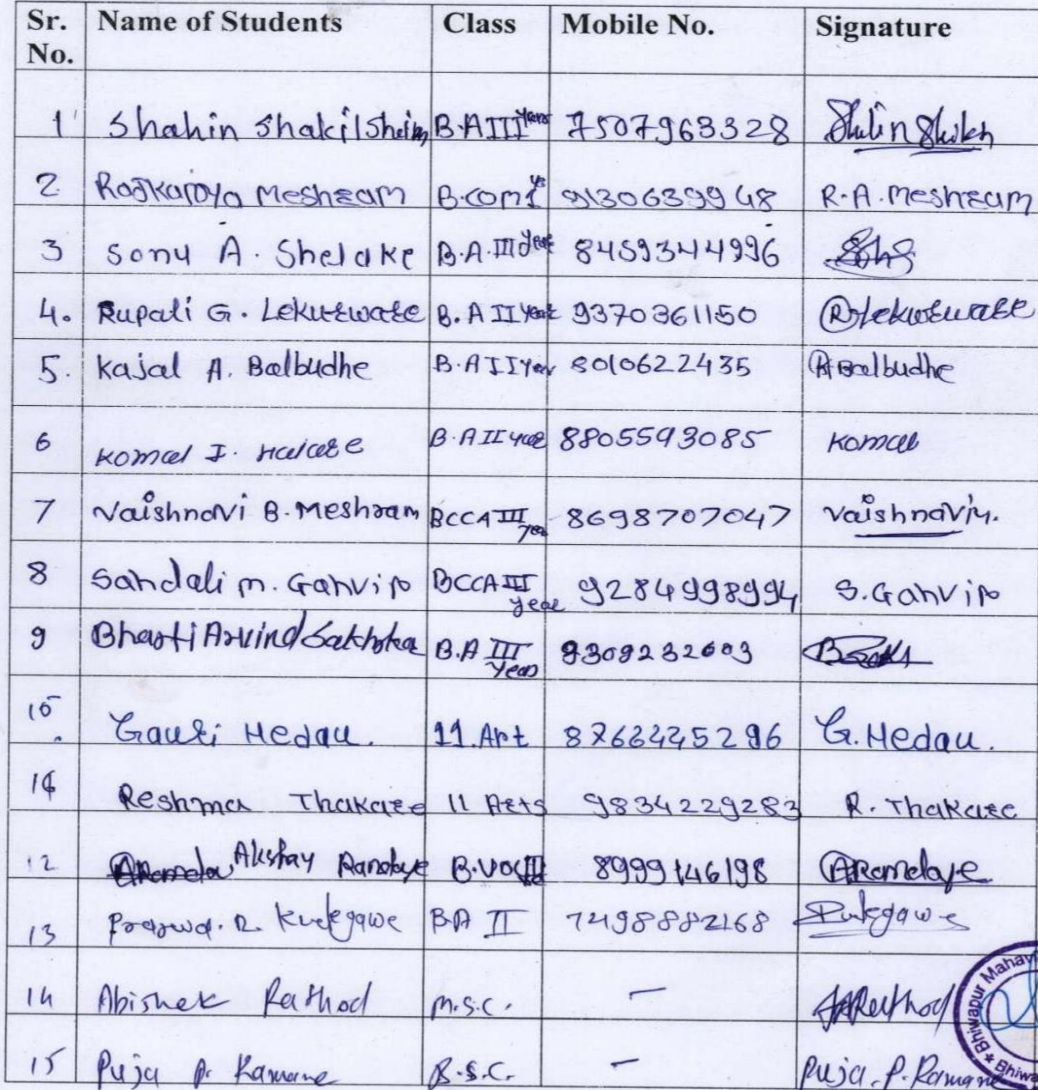 Sr. No. Name of Students Class Mobile No. Signature
1 Shahin Shakil Sheikh B.A III year 7507963328 Shahin Shikh
2 Rajkanya Meshram B.com I 9130639948 R.A. Meshram
3 Sonu A. Shelake B.A. III year 8459344996
4. Rupali G. Lekurwale B.A II Year 9370361150 R Lekurwale
5. Kajal A. Balbudhe B.A II Year 8010622435 KABalbudhe
6 Komal I. B.A II year 8805593085 Komal
7 Vaishnavi B. Meshram BCCA III year 8698707047 Vaishnavi M.
8 Sandali M. Ganvir BCCA III year 9284998994 S. Ganvir
9 Bharti Arvind B.A III Year 9309232603
10. Gauri Hedau. 11. Art 8766225296 G. Hedau.
11 Reshma Thakare 11 Arts 9834229283 R. Thakare
12 Akshay Ramdaye B.VOC III 8999146198 ARamdaye
13 R. Kudegawe BA II 7498882168
14 Abishek Rathod M.S.C. — Rathod
15 Puja P. Ramane B.S.C. — Puja. P. Ramane
Bhiwapur Mahavi